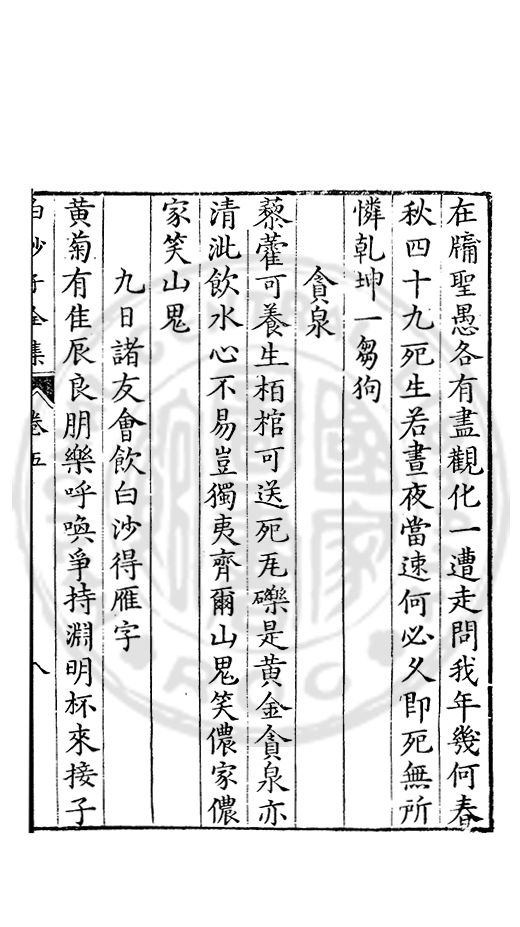 在牗聖愚各有盡觀化一遭走問我年幾何春
秋四十九死生若晝夜當速何必久即死無所
憐乾坤一芻狗
貪泉
藜藿可養生栢棺可送死瓦礫是黄金貪泉亦
清泚飲水心不易豈獨夷齊爾山鬼笑儂家儂
家笑山鬼
九日諸友會飲白沙得雁字
黄菊有佳辰良朋樂呼喚爭持淵明杯來接子
白沙子全集 卷五 八